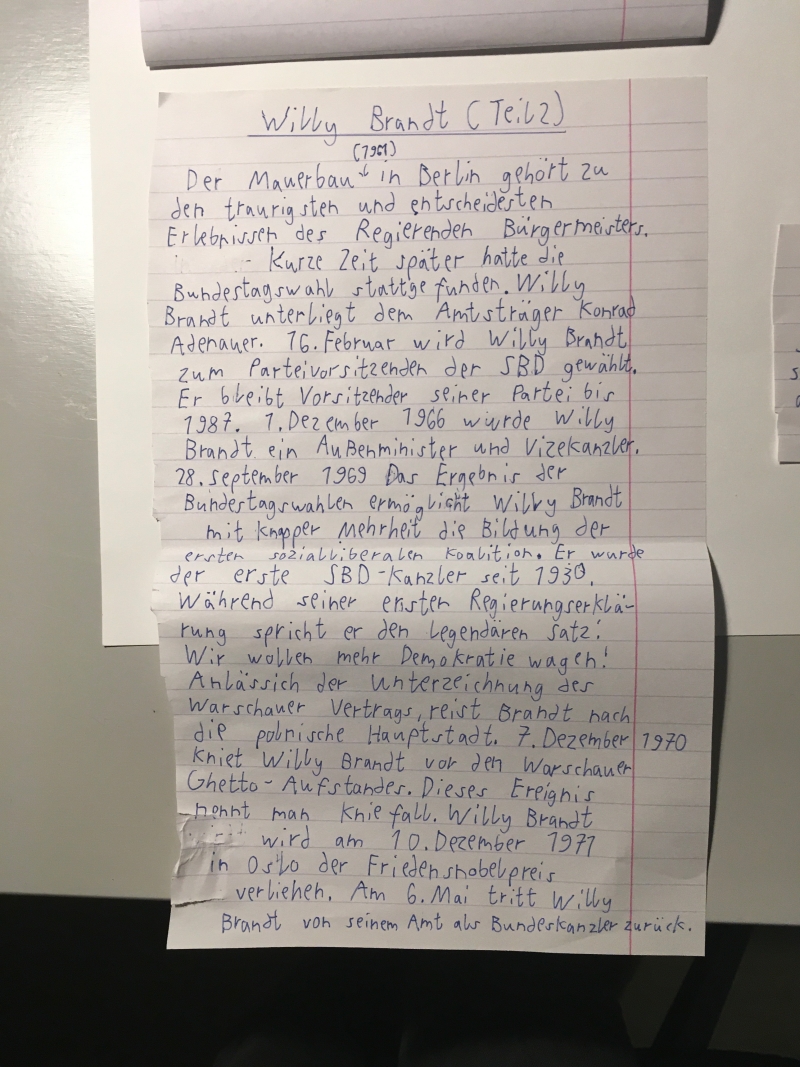 Willy Brandt (Teil 2)
(1961)
Der Mauerbau↓ in Berlin gehört zu
den traurigsten und entscheidesten
Erlebnissen des Regierenden Bürgermeisters.
Kurze Zeit später hatte die
Bundestagswahl stattgefunden. Willy
Brandt unterliegt dem Amtsträger Konrad
Adenauer. 16. Februar wird Willy Brandt
zum Parteivorsitzenden der SBD gewählt.
Er bleibt Vorsitzender seiner Partei bis
1987. 1. Dezember 1966 wurde Willy
Brandt ein Außenminister und Vizekanzler.
28. September 1969 Das Ergebnis der
Bundestagswahlen ermöglicht Willy Brandt
mit knapper Mehrheit die Bildung der
ersten sozialliberalen Koalition. Er wurde
der erste SBD-Kanzler seit 1930.
Während seiner ersten Regierungserklä-
rung spricht er den legendären Satz:
Wir wollen mehr Demokratie wagen!
Anlässich der Unterzeichnung des
Warschauer Vertrags, reist Brandt nach
die polnische Hauptstadt. 7. Dezember 1970
kniet Willy Brandt vor den Warschauer
Ghetto-Aufstandes. Dieses Ereignis
nennt man Kniefall. Willy Brandt
wird am 10. Dezember 1971
in Oslo der Friedensnobelpreis
verliehen. Am 6. Mai tritt Willy
Brandt von seinem Amt als Bundeskanzler zurück.